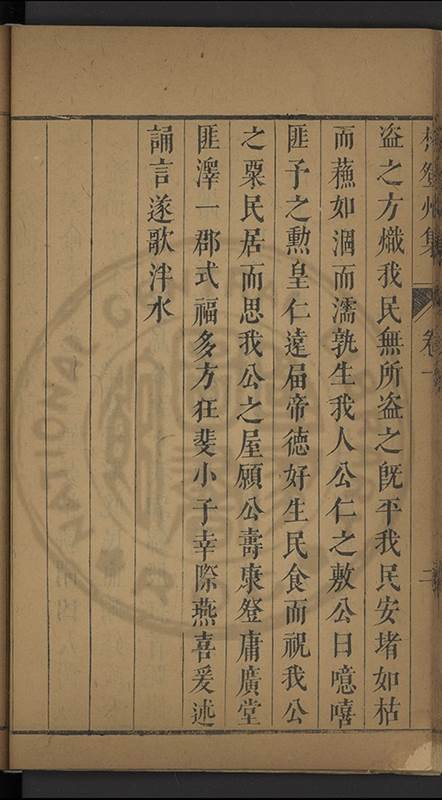 登州集 卷一 二
盗之方熾我民無所盗之旣平我民安堵如枯
而蘓如涸而濡孰生我人公仁之敷公曰噫嘻
匪予之勳皇仁遠屆帝德好生民食而祝我公
之粟民居而思我公之屋願公壽康登庸廣堂
匪澤一郡式福多方狂斐小子幸際燕喜爰述
誦言遂歌泮水